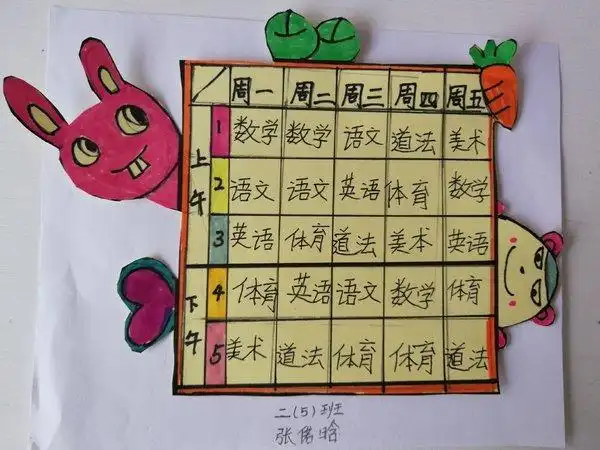 周一 周二 周三 周四 周五
上午 1 数学 数学 语文 道法 美术
2 语文 语文 英语 体育 数学
3 英语 体育 道法 美术 英语
下午 4 体育 英语 语文 数学 体育
5 美术 道法 体育 体育 道法
二(5)班
张偌晗